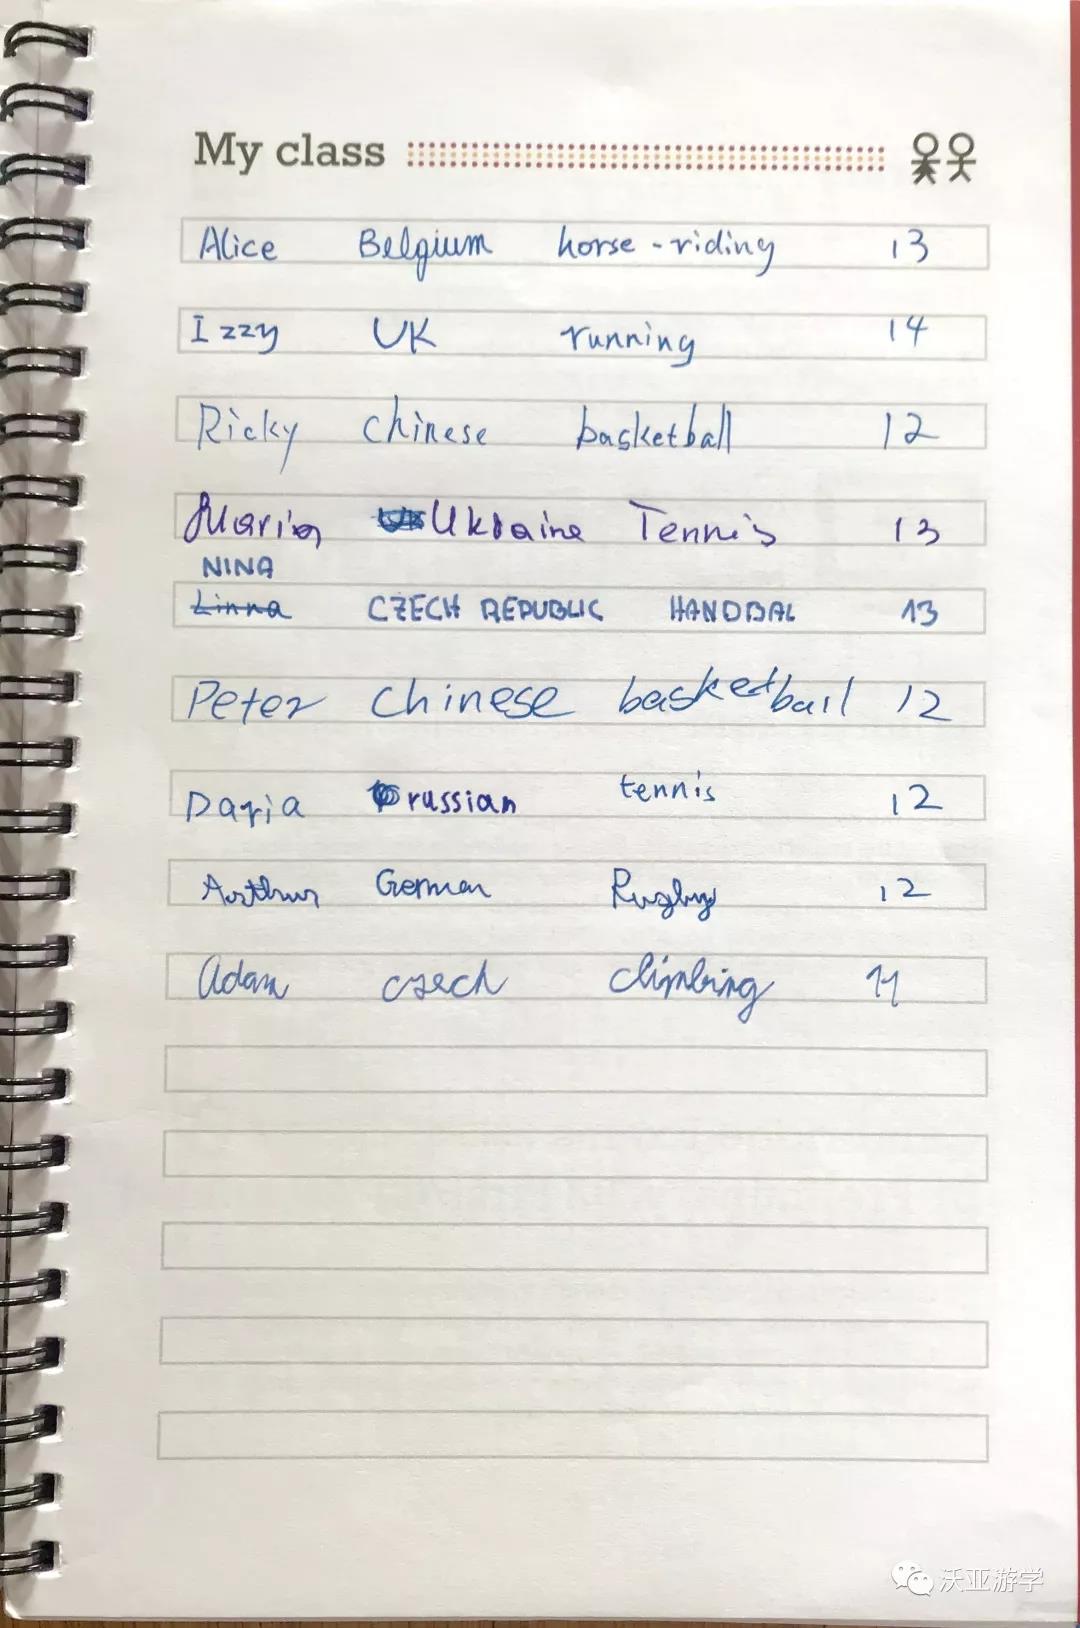 My class
Alice Belgium horse-riding 13
Izzy UK running 14
Ricky chinese basketball 12
Maria Ukraine Tennis 13
NINA
Linna CZECH REPUBLIC HANDBAL 13
Peter chinese basketball 12
Daria russian tennis 12
Arthur German Rugby 12
Adam czech climbing 11
沃亚游学